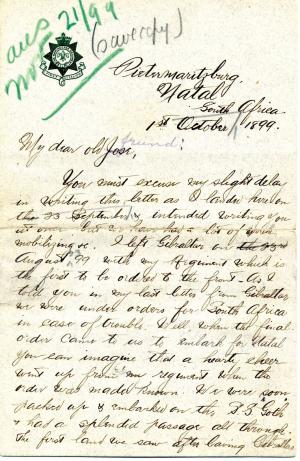 ans
Nov 21/99
(save copy)
Pietermaritzburg,
Natal
South Africa
1st October 1899.
My dear old José, friend:
You must excuse my slight delay
in writing this letter as I landed here on
the 23 September & intended writing you
at once but we have had a lot of work
mobilizing &c. I left Gibraltar on the 23rd
August 99 with my Regiment which is
the first to be ordered to the front. As I
told you in my last letter from Gibraltar
we were under orders for South Africa
in case of trouble. Well, when the final
order came to us to embark for Natal
you can imagine that a hearty cheer
went up from my regiment when the
order was made known. We were soon
packed up & embarked on the S.S. Goth
& had a splendid passage all through.
The first land we saw after leaving Gibraltar